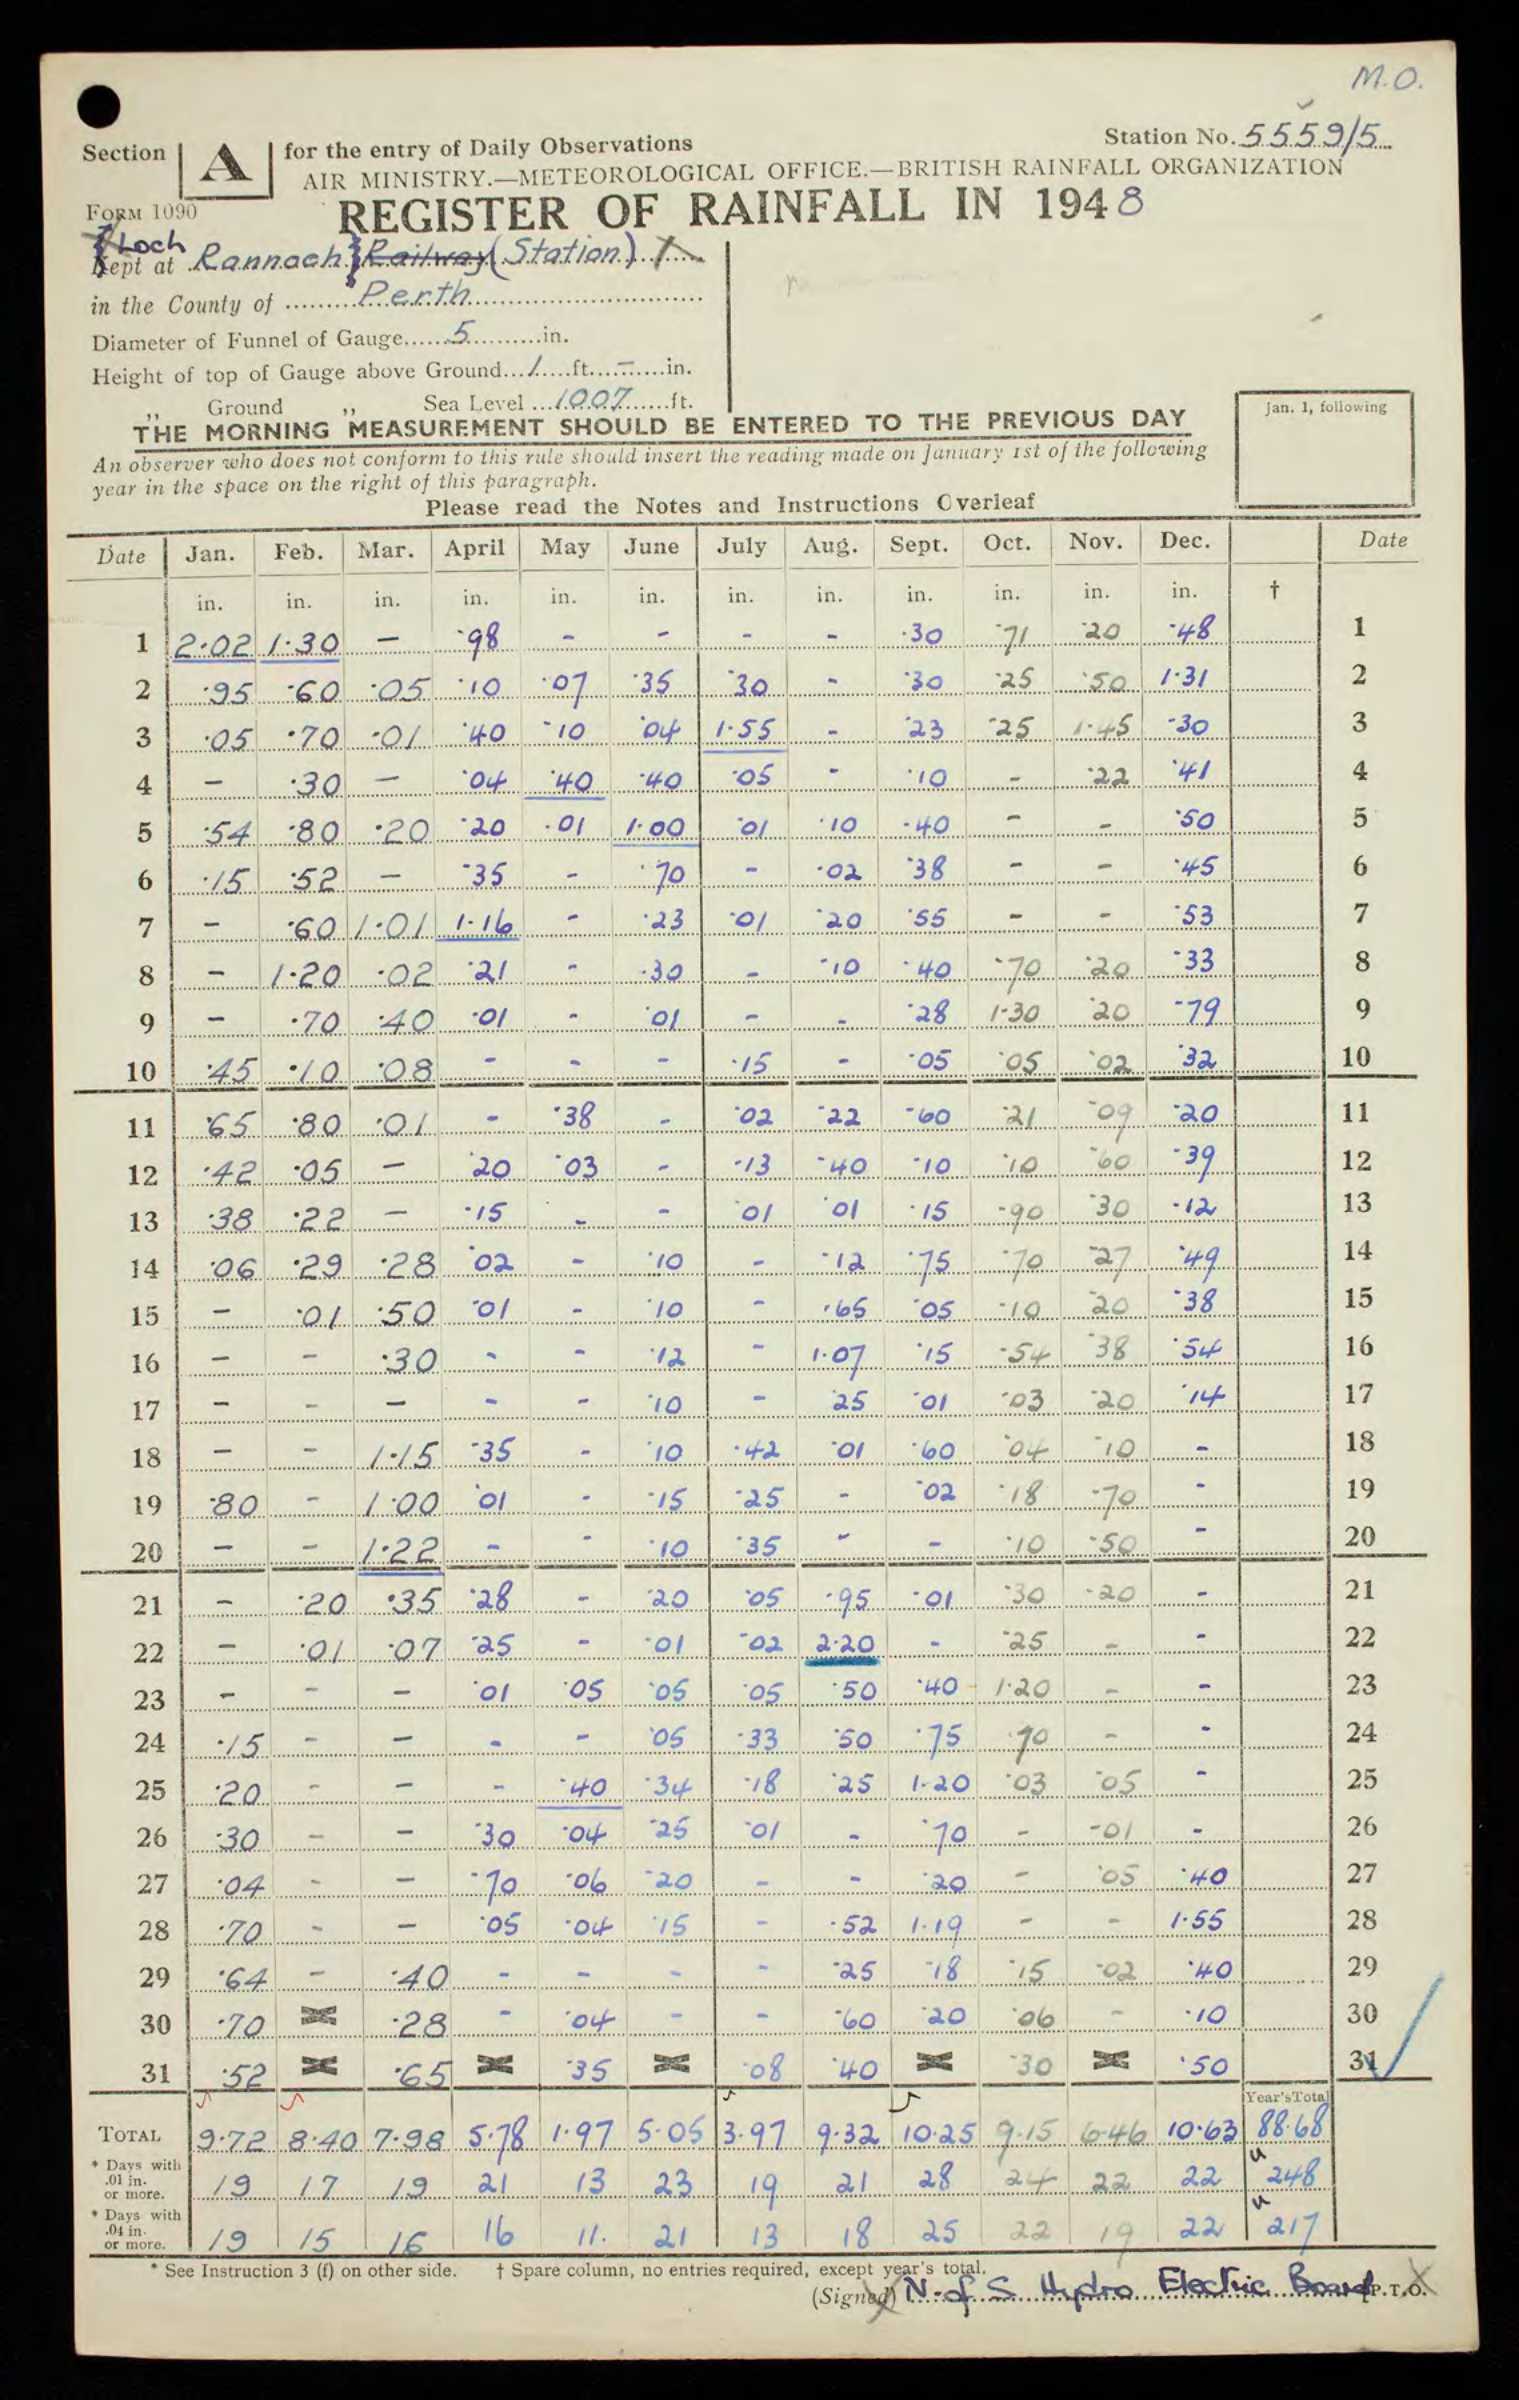 M.O.
Section A for the entry of Daily Observations
Station No. 5559/5
AIR MINISTRY.—METEOROLOGICAL OFFICE.—BRITISH RAINFALL ORGANIZATION
FORM 1090
REGISTER OF RAINFALL IN 1948
Loch
Kept at Rannoch Railway (Station)
in the County of Perth
Diameter of Funnel of Gauge 5 in.
Height of top of Gauge above Ground 1 ft. - in.
,, Ground ,, Sea Level 1007 ft.
THE MORNING MEASUREMENT SHOULD BE ENTERED TO THE PREVIOUS DAY
Jan. 1, following
An observer who does not conform to this rule should insert the reading made on January 1st of the following
year in the space on the right of this paragraph.
Please read the Notes and Instructions Overleaf
Date Jan. Feb. Mar. April May June July Aug. Sept. Oct. Nov. Dec. Date
in. in. in. in. in. in. in. in. in. in. in. in. †
1 2.02 1.30 - .98 - - - - .30 .71 .20 .48 1
2 .95 .60 .05 .10 .07 .35 .30 - .30 .25 .50 1.31 2
3 .05 .70 .01 .40 .10 .04 1.55 - .23 .25 1.45 .30 3
4 - .30 - .04 .40 .40 .05 - .10 - .22 .41 4
5 .54 .80 .20 .20 .01 1.00 .01 .10 .40 - - .50 5
6 .15 .52 - .35 - .70 - .02 .38 - - .45 6
7 - .60 1.01 1.16 - .23 .01 .20 .55 - - .53 7
8 - 1.20 .02 .21 - .30 - .10 .40 .70 .20 .33 8
9 - .70 .40 .01 - .01 - - .28 1.30 .20 .79 9
10 .45 .10 .08 - - - .15 - .05 .05 .02 .32 10
11 .65 .80 .01 - .38 - .02 .22 .60 .21 .09 .20 11
12 .42 .05 - .20 .03 - .13 .40 .10 .10 .60 .39 12
13 .38 .22 - .15 - - .01 .01 .15 .90 .30 .12 13
14 .06 .29 .28 .02 - .10 - .12 .75 .70 .27 .49 14
15 - .01 .50 .01 - .10 - .65 .05 .10 .20 .38 15
16 - - .30 - - .12 - 1.07 .15 .54 .38 .54 16
17 - - - - - .10 - .25 .01 .03 .20 .14 17
18 - - 1.15 .35 - .10 .42 .01 .60 .04 .10 - 18
19 .80 - 1.00 .01 - .15 .25 - .02 .18 .70 - 19
20 - - 1.22 - - .10 .35 - - .10 .50 - 20
21 - .20 .35 .28 - .20 .05 .95 .01 .30 .20 - 21
22 - .01 .07 .25 - .01 .02 2.20 - .25 - - 22
23 - - - .01 .05 .05 .05 .50 .40 1.20 - - 23
24 .15 - - - - .05 .33 .50 .75 .70 - - 24
25 .20 - - - .40 .34 .18 .25 1.20 .03 .05 - 25
26 .30 - - .30 .04 .25 .01 - .70 - .01 - 26
27 .04 - - .70 .06 .20 - - .20 - .05 .40 27
28 .70 - - .05 .04 .15 - .52 1.19 - - 1.55 28
29 .64 - .40 - - - - .25 .18 .15 .02 .40 29
30 .70 .28 - .04 - - .60 .20 .06 - .10 30
31 .52 .65 .35 .08 .40 .30 .50 31
Year's Total
TOTAL 9.72 8.40 7.98 5.78 1.97 5.05 3.97 9.32 10.25 9.15 6.46 10.63 88.68
* Days with .01 in. or more. 19 17 19 21 13 23 19 21 28 24 22 22 248
* Days with .04 in. or more. 19 15 16 16 11. 21 13 18 25 22 19 22 217
* See Instruction 3 (f) on other side. † Spare column, no entries required, except year's total.
(Signed) N. of S. Hydro Electric Board P.T.O.